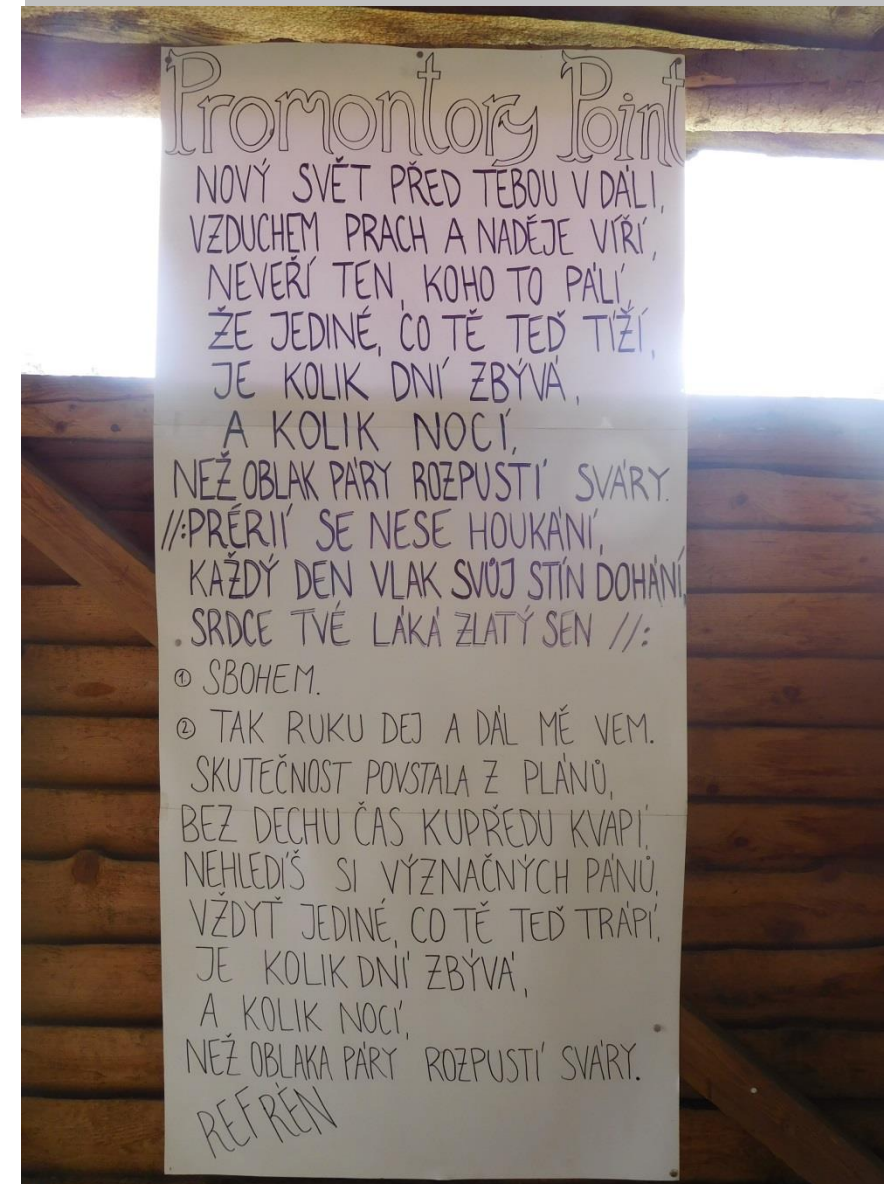 Promontory Point
NOVÝ SVĚT PŘED TEBOU V DÁLI,
VZDUCHEM PRACH A NADĚJE VÍŘÍ,
NEVEŘÍ TEN, KOHO TO PÁLÍ,
ŽE JEDINÉ, CO TĚ TEĎ TÍŽÍ,
JE KOLIK DNÍ ZBÝVÁ,
A KOLIK NOCÍ,
NEŽ OBLAK PÁRY ROZPUSTÍ SVÁRY.
//:PRÉRIÍ SE NESE HOUKÁNÍ,
KAŽDÝ DEN VLAK SVŮJ STÍN DOHÁNÍ,
SRDCE TVÉ LÁKÁ ZLATÝ SEN //:
① SBOHEM.
② TAK RUKU DEJ A DÁL MĚ VEM.
SKUTEČNOST POVSTALA Z PLÁNŮ,
BEZ DECHU ČAS KUPŘEDU KVAPÍ.
NEHLEDÍŠ SI VÝZNAČNÝCH PÁNŮ,
VŽDYŤ JEDINÉ, CO TĚ TEĎ TRÁPÍ,
JE KOLIK DNÍ ZBÝVÁ,
A KOLIK NOCÍ,
NEŽ OBLAKA PÁRY ROZPUSTÍ SVÁRY.
REFRÉN